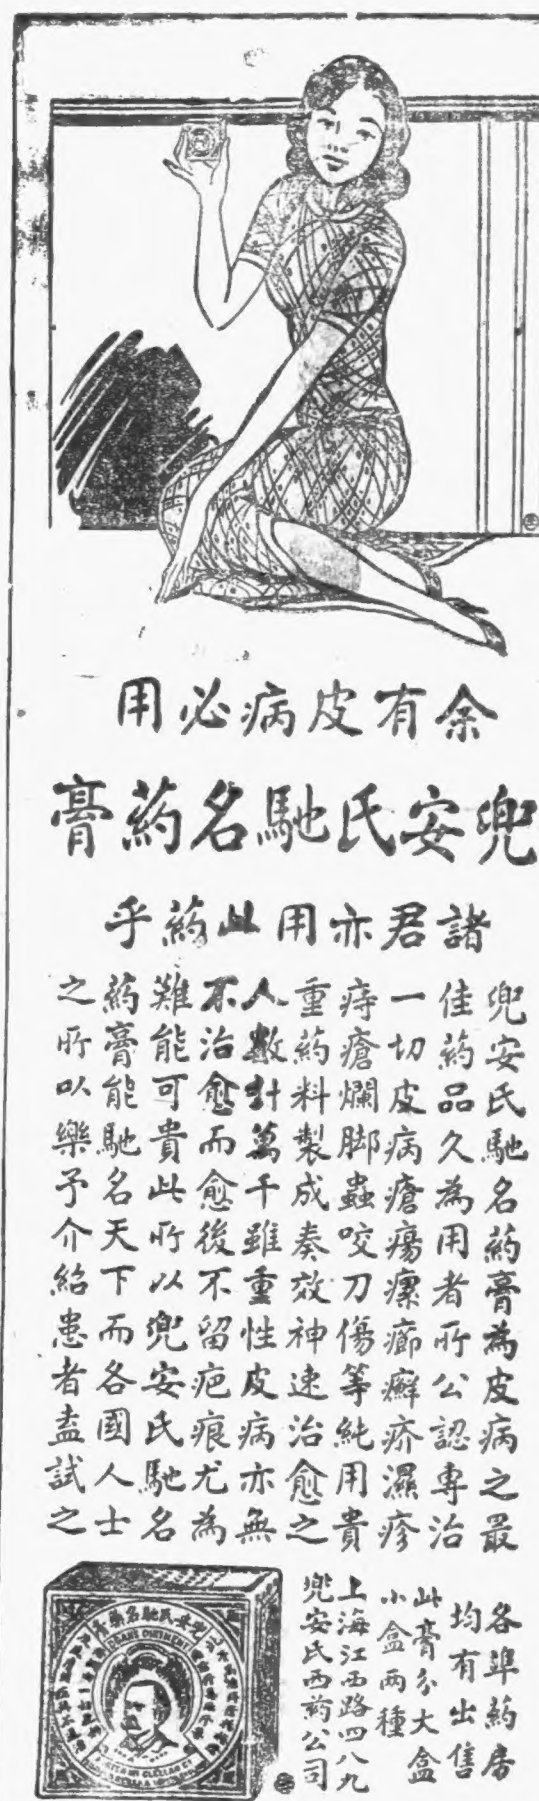 余有皮病必用
兜安氏馳名药膏
諸君亦用此药乎
兜安氏馳名药膏為皮病之最
佳药品久為用者所公認專治
一切皮病瘡瘍瘰癤癬疥濕疹
痔瘡爛脚蟲咬刀傷等純用貴
重药料製成奏效神速治愈之
人數計萬千雖重性皮病亦無
不治愈而愈後不留疤痕尤為
難能可貴此所以兜安氏馳名
药膏能馳名天下而各國人士
之所以樂予介紹患者盍試之
各埠药房
均有出售
此膏分大盒
小盒兩種
上海江西路四八九
兜安氏西药公司
兜安氏馳名藥膏
DOANS OINTMENT